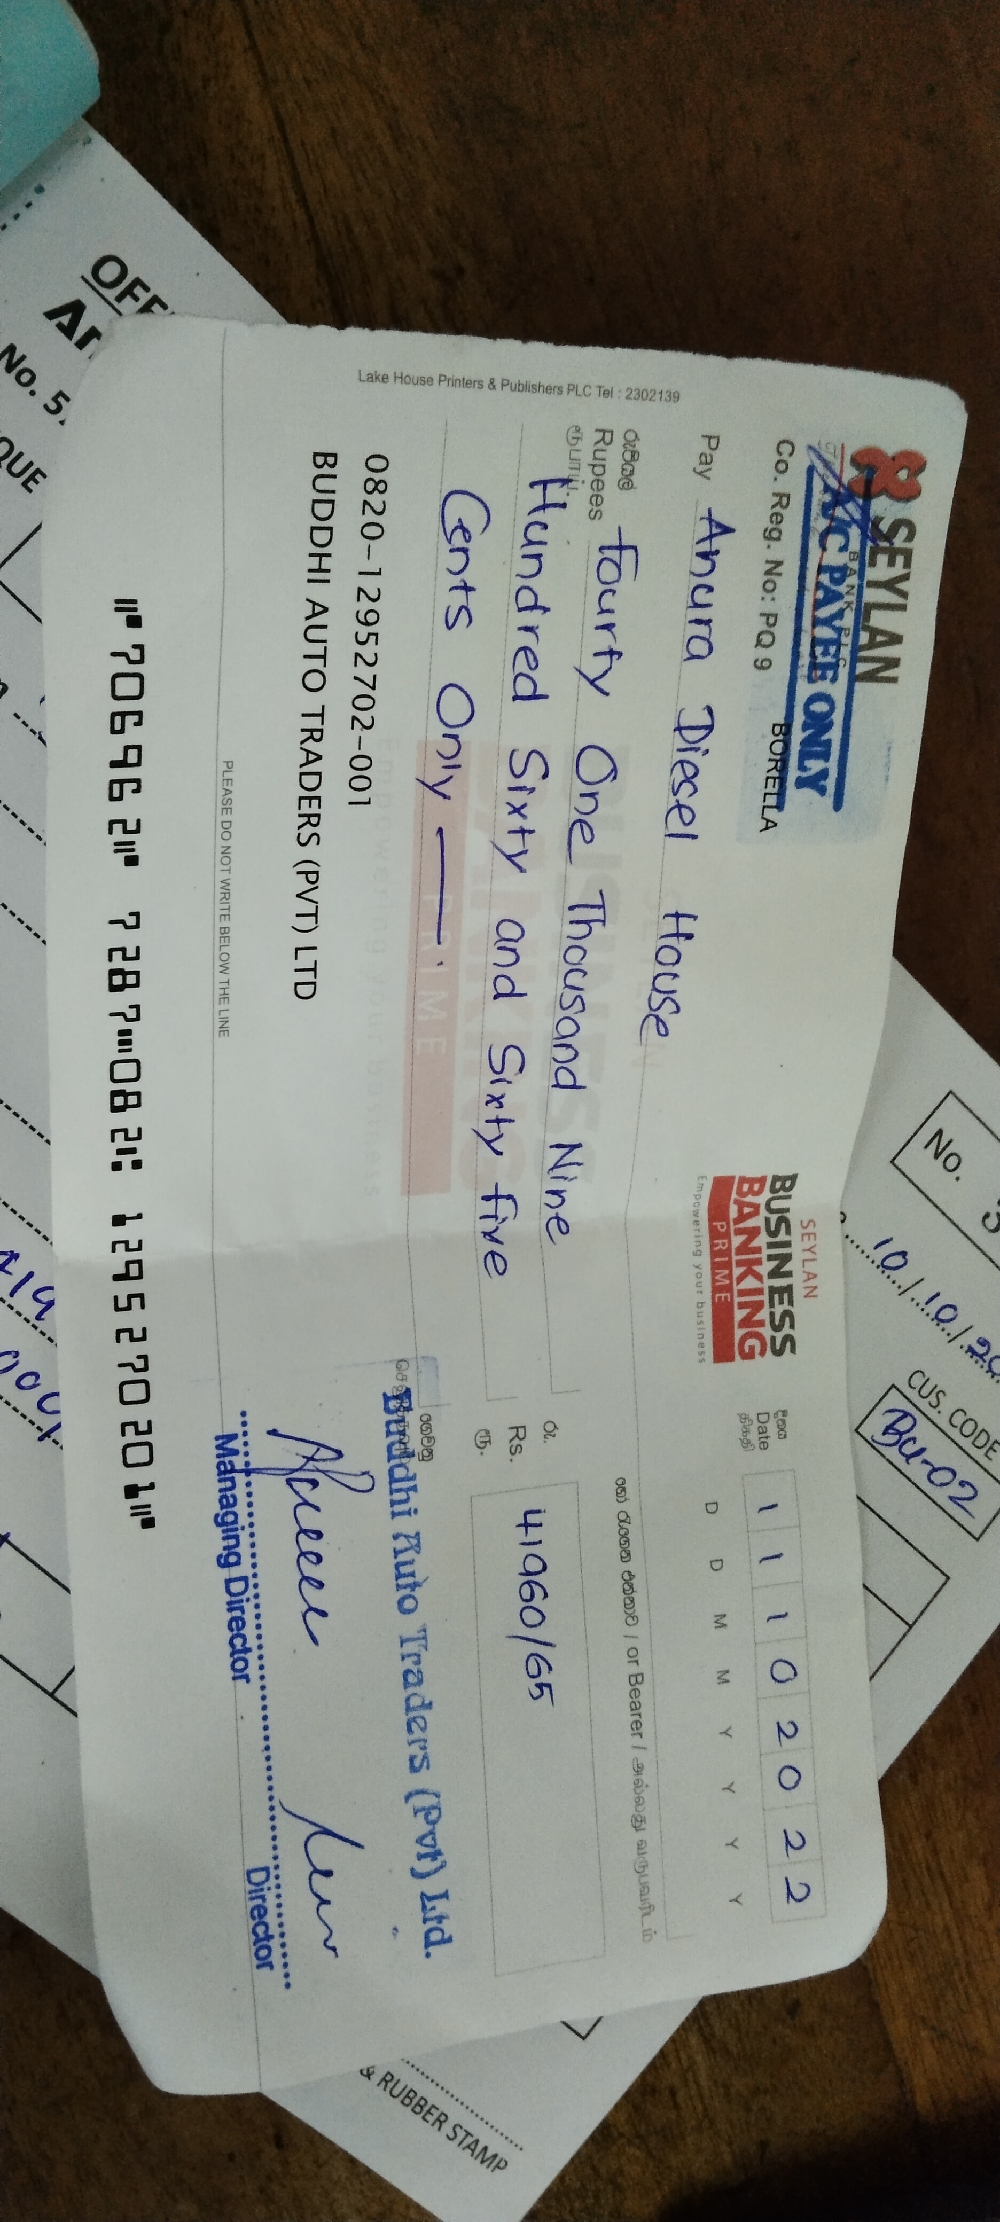 SEYLAN
BANK PLC
A/C PAYEE ONLY
Co. Reg. No: PQ 9
BORELLA
SEYLAN
BUSINESS
BANKING
PRIME
Empowering your business
දිනය
Date
திகதி
1 1 1 0 2 0 2 2
D D M M Y Y Y Y
Pay Anura Diesel House
හෝ රැගෙන එන්නාට / or Bearer / அல்லது வருபவரிடம்
රුපියල්
Rupees
ரூபாய்
Fourty One Thousand Nine
Hundred Sixty and Sixty five
Cents Only
රු.
Rs.
ரூ.
41960/65
0820-12952702-001
BUDDHI AUTO TRADERS (PVT) LTD
Buddhi Auto Traders (Pvt) Ltd.
Managing Director
Director
PLEASE DO NOT WRITE BELOW THE LINE
⑈706962⑈ 7287⑉082⑆ 1295270201⑈
Lake House Printers & Publishers PLC Tel : 2302139
No. 5
QUE
No.
10/10/20
CUS. CODE
BU-02
& RUBBER STAMP